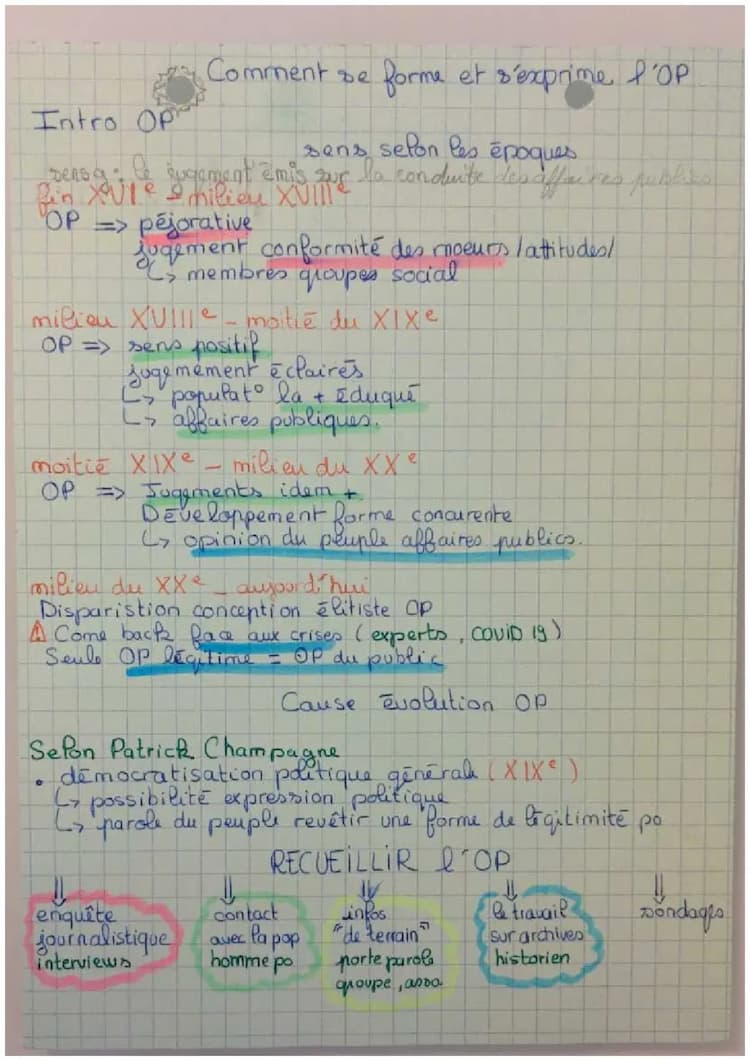 Comment se forme et s'exprime l'OP
Intro OP
sens selon les époques
sens g : le jugement émis sur la conduite des affaires publics
fin XVIe - milieu XVIIIe
OP => péjorative
jugement conformité des moeurs /attitudes/
↳ membres groupes social
milieu XVIIIe - moitié du XIXe
OP => sens positif
jugemement éclairés
↳ populat° la + éduqué
↳ affaires publiques.
moitié XIXe - milieu du XXe
OP => Jugements idem +
Développement forme concurente
↳ opinion du peuple affaires publics.
milieu du XXe - aujourd'hui
Disparistion conception élitiste OP
⚠ Come back face aux crises (experts, COVID 19)
Seule OP légitime = OP du public
Cause évolution OP
Selon Patrick Champagne
• démocratisation politique générale (XIXe)
↳ possibilité expression politique
↳ parole du peuple revêtir une forme de légitimité po
RECUEILLIR l'OP
⇓ ⇓ ⇓ ⇓ ⇓
enquête journalistique interviews
contact avec la pop homme po
infos "de terrain" porte parole groupe, asso
le travail sur archives historien
sondages